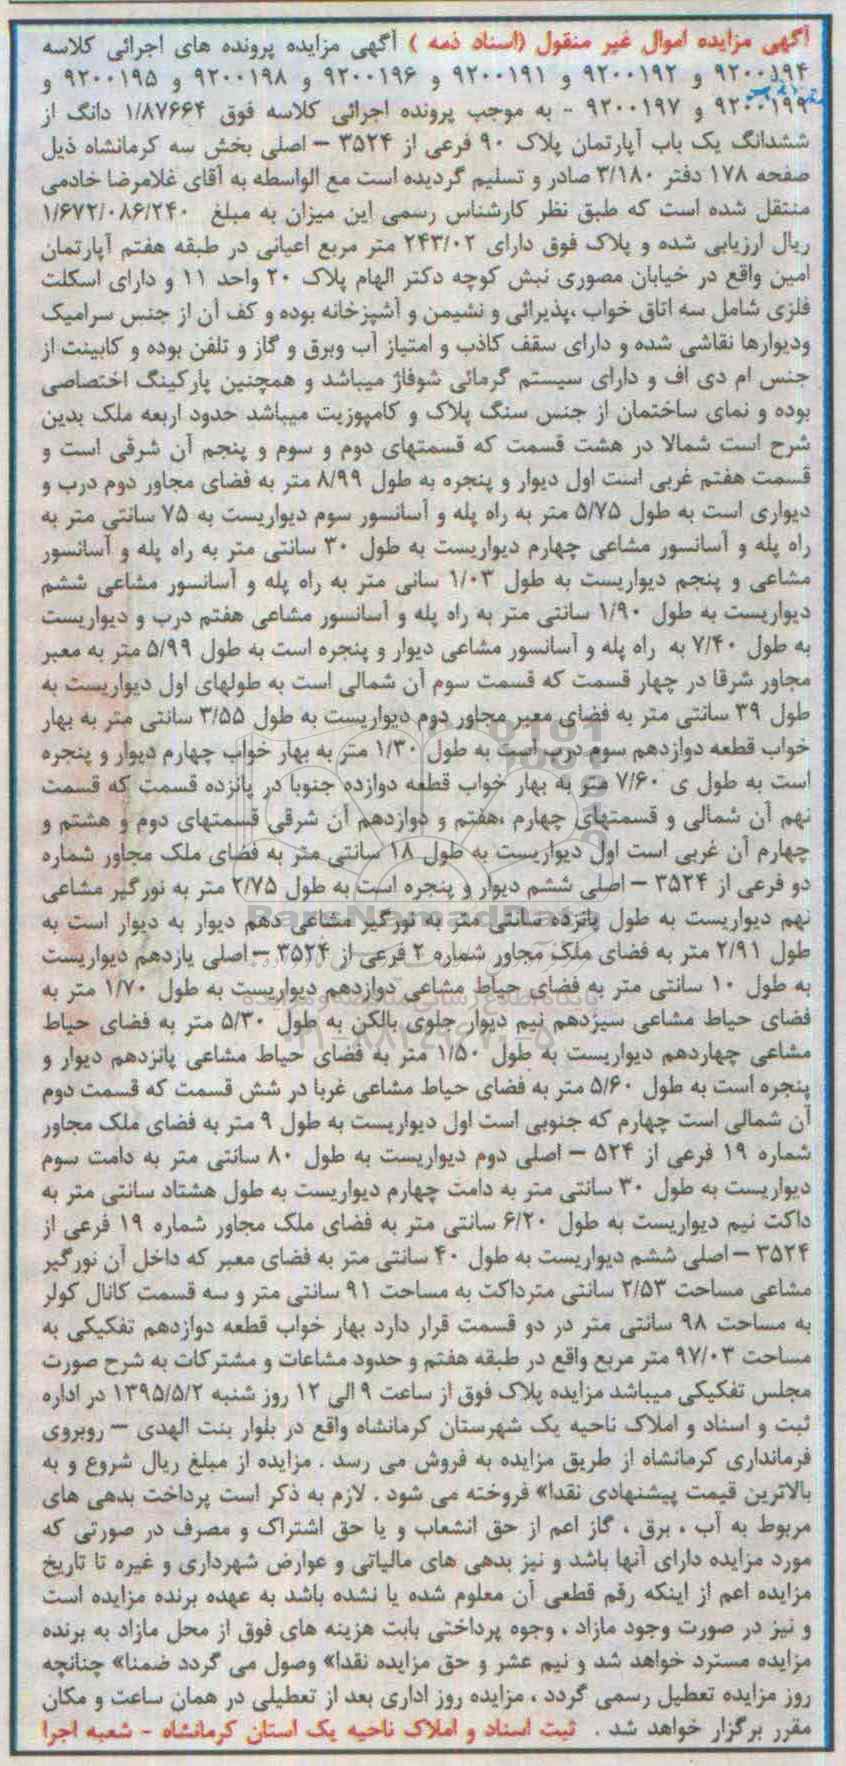 آگهی مزایده اموال غیر منقول (اسناد ذمه ) آگهی مزایده پرونده های اجرائی کلاسه
۹۲۰۰۱۹۴ و ۹۲۰۰۱۹۲ و ۹۲۰۰۱۹۱ و ۹۲۰۰۱۹۶ و ۹۲۰۰۱۹۸ و ۹۲۰۰۱۹۵ و
۹۲۰۰۱۹۹ و ۹۲۰۰۱۹۷ - به موجب پرونده اجرائی کلاسه فوق ۱/۸۷۶۶۴ دانگ از
ششدانگ یک باب آپارتمان پلاک ۹۰ فرعی از ۳۵۲۴ – اصلی بخش سه کرمانشاه ذیل
صفحه ۱۷۸ دفتر ۳/۱۸۰ صادر و تسلیم گردیده است مع الواسطه به آقای غلامرضا خادمی
منتقل شده است که طبق نظر کارشناس رسمی این میزان به مبلغ ۱/۶۷۲/۰۸۶/۲۴۰
ریال ارزیابی شده و پلاک فوق دارای ۲۴۳/۰۲ متر مربع اعیانی در طبقه هفتم آپارتمان
امین واقع در خیابان مصوری نبش کوچه دکتر الهام پلاک ۲۰ واحد ۱۱ و دارای اسکلت
فلزی شامل سه اتاق خواب ،پذیرائی و نشیمن و آشپزخانه بوده و کف آن از جنس سرامیک
ودیوارها نقاشی شده و دارای سقف کاذب و امتیاز آب وبرق و گاز و تلفن بوده و کابینت از
جنس ام دی اف و دارای سیستم گرمائی شوفاژ میباشد و همچنین پارکینگ اختصاصی
بوده و نمای ساختمان از جنس سنگ پلاک و کامپوزیت میباشد حدود اربعه ملک بدین
شرح است شمالا در هشت قسمت که قسمتهای دوم و سوم و پنجم آن شرقی است و
قسمت هفتم غربی است اول دیوار و پنجره به طول ۸/۹۹ متر به فضای مجاور دوم درب و
دیواری است به طول ۵/۷۵ متر به راه پله و آسانسور سوم دیواریست به ۷۵ سانتی متر به
راه پله و آسانسور مشاعی چهارم دیواریست به طول ۳۰ سانتی متر به راه پله و آسانسور
مشاعی و پنجم دیواریست به طول ۱/۰۳ سانی متر به راه پله و آسانسور مشاعی ششم
دیواریست به طول ۱/۹۰ سانتی متر به راه پله و آسانسور مشاعی هفتم درب و دیواریست
به طول ۷/۴۰ به راه پله و آسانسور مشاعی دیوار و پنجره است به طول ۵/۹۹ متر به معبر
مجاور شرقا در چهار قسمت که قسمت سوم آن شمالی است به طولهای اول دیواریست به
طول ۳۹ سانتی متر به فضای معبر مجاور دوم دیواریست به طول ۳/۵۵ سانتی متر به بهار
خواب قطعه دوازدهم سوم درب است به طول ۱/۳۰ متر به بهار خواب چهارم دیوار و پنجره
است به طول ی ۷/۶۰ متر به بهار خواب قطعه دوازده جنوبا در پانزده قسمت که قسمت
نهم آن شمالی و قسمتهای چهارم ،هفتم و دوازدهم آن شرقی قسمتهای دوم و هشتم و
چهارم آن غربی است اول دیواریست به طول ۱۸ سانتی متر به فضای ملک مجاور شماره
دو فرعی از ۳۵۲۴ – اصلی ششم دیوار و پنجره است به طول ۲/۷۵ متر به نورگیر مشاعی
نهم دیواریست به طول پانزده سانتی متر به نورگیر مشاعی دهم دیوار به دیوار است به
طول ۲/۹۱ متر به فضای ملک مجاور شماره ۲ فرعی از ۳۵۲۴ – اصلی یازدهم دیواریست
به طول ۱۰ سانتی متر به فضای حیاط مشاعی دوازدهم دیواریست به طول ۱/۷۰ متر به
فضای حیاط مشاعی سیزدهم نیم دیوار جلوی بالکن به طول ۵/۳۰ متر به فضای حیاط
مشاعی چهاردهم دیواریست به طول ۱/۵۰ متر به فضای حیاط مشاعی پانزدهم دیوار و
پنجره است به طول ۵/۶۰ متر به فضای حیاط مشاعی غربا در شش قسمت که قسمت دوم
آن شمالی است چهارم که جنوبی است اول دیواریست به طول ۹ متر به فضای ملک مجاور
شماره ۱۹ فرعی از ۵۲۴ – اصلی دوم دیواریست به طول ۸۰ سانتی متر به دامت سوم
دیواریست به طول ۳۰ سانتی متر به دامت چهارم دیواریست به طول هشتاد سانتی متر به
داکت نیم دیواریست به طول ۶/۲۰ سانتی متر به فضای ملک مجاور شماره ۱۹ فرعی از
۳۵۲۴ – اصلی ششم دیواریست به طول ۴۰ سانتی متر به فضای معبر که داخل آن نورگیر
مشاعی مساحت ۲/۵۳ سانتی مترداکت به مساحت ۹۱ سانتی متر و سه قسمت کانال کولر
به مساحت ۹۸ سانتی متر در دو قسمت قرار دارد بهار خواب قطعه دوازدهم تفکیکی به
مساحت ۹۷/۰۳ متر مربع واقع در طبقه هفتم و حدود مشاعات و مشترکات به شرح صورت
مجلس تفکیکی میباشد مزایده پلاک فوق از ساعت ۹ الی ۱۲ روز شنبه ۱۳۹۵/۵/۲ در اداره
ثبت و اسناد و املاک ناحیه یک شهرستان کرمانشاه واقع در بلوار بنت الهدی – روبروی
فرمانداری کرمانشاه از طریق مزایده به فروش می رسد . مزایده از مبلغ ریال شروع و به
بالاترین قیمت پیشنهادی نقدا» فروخته می شود . لازم به ذکر است پرداخت بدهی های
مربوط به آب ، برق ، گاز اعم از حق انشعاب و یا حق اشتراک و مصرف در صورتی که
مورد مزایده دارای آنها باشد و نیز بدهی های مالیاتی و عوارض شهرداری و غیره تا تاریخ
مزایده اعم از اینکه رقم قطعی آن معلوم شده یا نشده باشد به عهده برنده مزایده است
و نیز در صورت وجود مازاد ، وجوه پرداختی بابت هزینه های فوق از محل مازاد به برنده
مزایده مسترد خواهد شد و نیم عشر و حق مزایده نقدا» وصول می گردد ضمنا» چنانچه
روز مزایده تعطیل رسمی گردد ، مزایده روز اداری بعد از تعطیلی در همان ساعت و مکان
مقرر برگزار خواهد شد . ثبت اسناد و املاک ناحیه یک استان کرمانشاه - شعبه اجرا